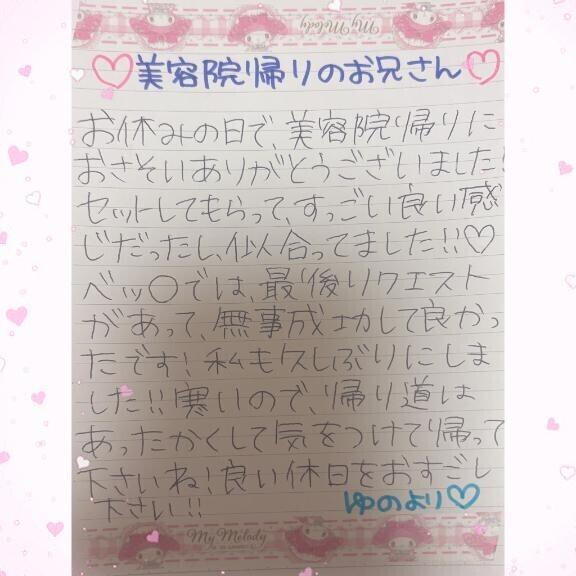 My Melody
My Melody
♡美容院帰りのお兄さん♡
お休みの日で、美容院帰りに
おさそいありがとうございました!
セットしてもらって、すっごい良い感
じだったし、似合ってました!!♡
ベッ〇では、最後リクエスト
があって、無事成功して良かっ
たです! 私も久しぶりにしま
した!! 寒いので、帰り道は
あったかくして気をつけて帰って
下さいね! 良い休日をおすごし
下さい!!
ゆのより♡
My Melody